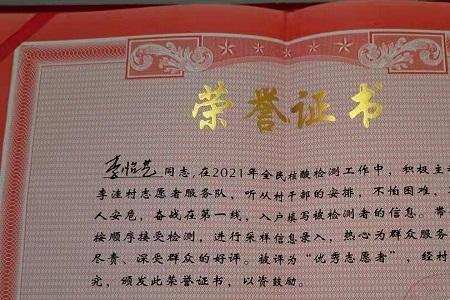 荣誉证书
李怡艺 同志，在2021年全民核酸检测工作中，积极主
李洼村志愿者服务队，听从村干部的安排，不怕困难，
人安危，奋战在第一线，入户填写被检测者的信息。带
按顺序接受检测，进行采样信息录入，热心为群众服务
尽责、深受群众的好评。被评为“优秀志愿者”，经村
究，颁发此荣誉证书，以资鼓励。